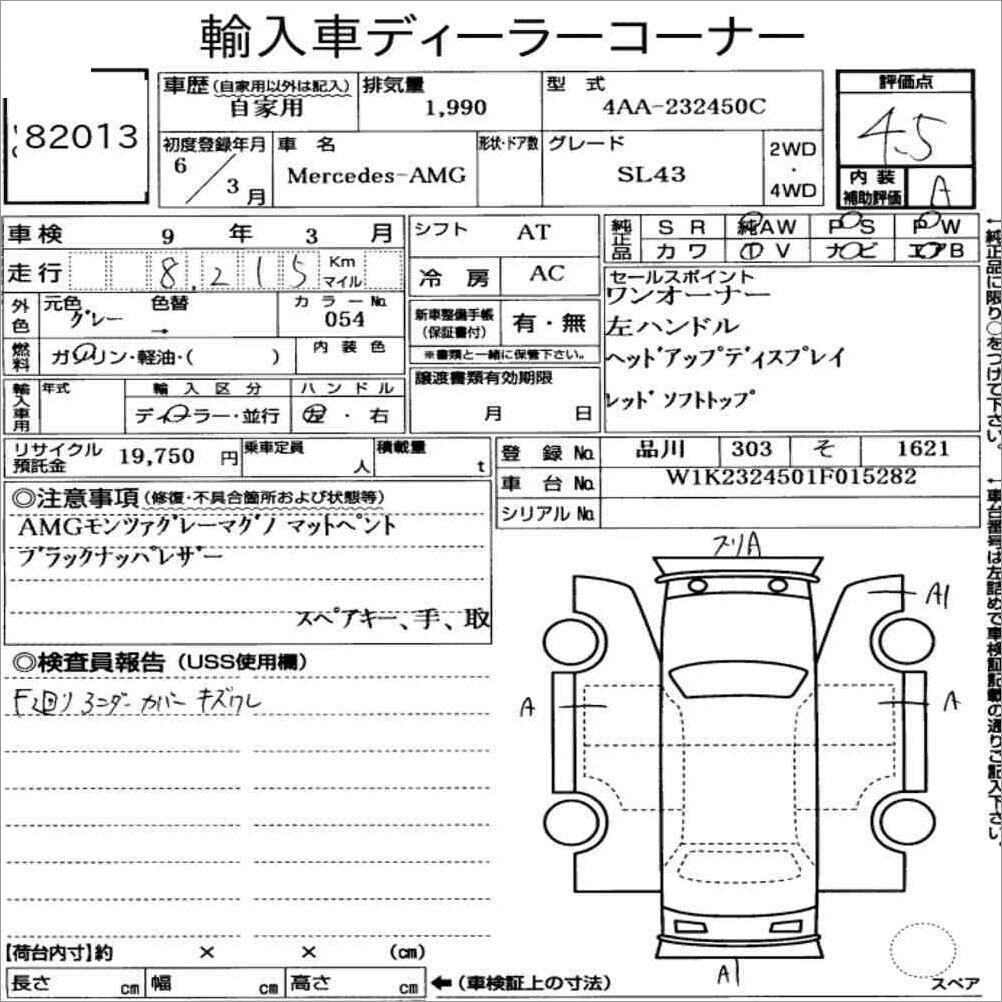 輸入車ディーラーコーナー
82013
車歴(自家用以外は記入) 自家用
排気量 1,990
型式 4AA-232450C
評価点 4.5
初度登録年月 6／3月
車名 Mercedes-AMG
形状・ドア数
グレード SL43
2WD・4WD
内装補助評価 A
車検 9年3月
走行 8,215 Km マイル
シフト AT
冷房 AC
純正品 SR 純AW PS PW
カワ TV ナビ エアB
外色 元色 グレー 色替 → カラーNo. 054
新車整備手帳(保証書付) 有・無
※書類と一緒に保管下さい。
セールスポイント
ワンオーナー
左ハンドル
ヘッドアップディスプレイ
レッドソフトトップ
燃料 ガソリン・軽油・( ) 内装色
譲渡書類有効期限 月 日
輸入車用 年式 輸入区分 ディーラー・並行 ハンドル 左・右
リサイクル預託金 19,750円
乗車定員 人
積載量 t
登録No. 品川 303 そ 1621
車台No. W1K2324501F015282
シリアルNo.
◎注意事項(修復・不具合箇所および状態等)
AMGモンツァグレーマグノ マットペント
ブラックナッパレザー
スペアキー、手、取
◎検査員報告(USS使用欄)
F廻り アンダーカバー キズワレ
スリA
A1
A
A
A1
スペア
【荷台内寸】約 × × (cm)
長さ cm 幅 cm 高さ cm ←(車検証上の寸法)
←純正品に限り○をつけて下さい。
←車台番号は左詰めで車検証記載の通りご記入下さい。